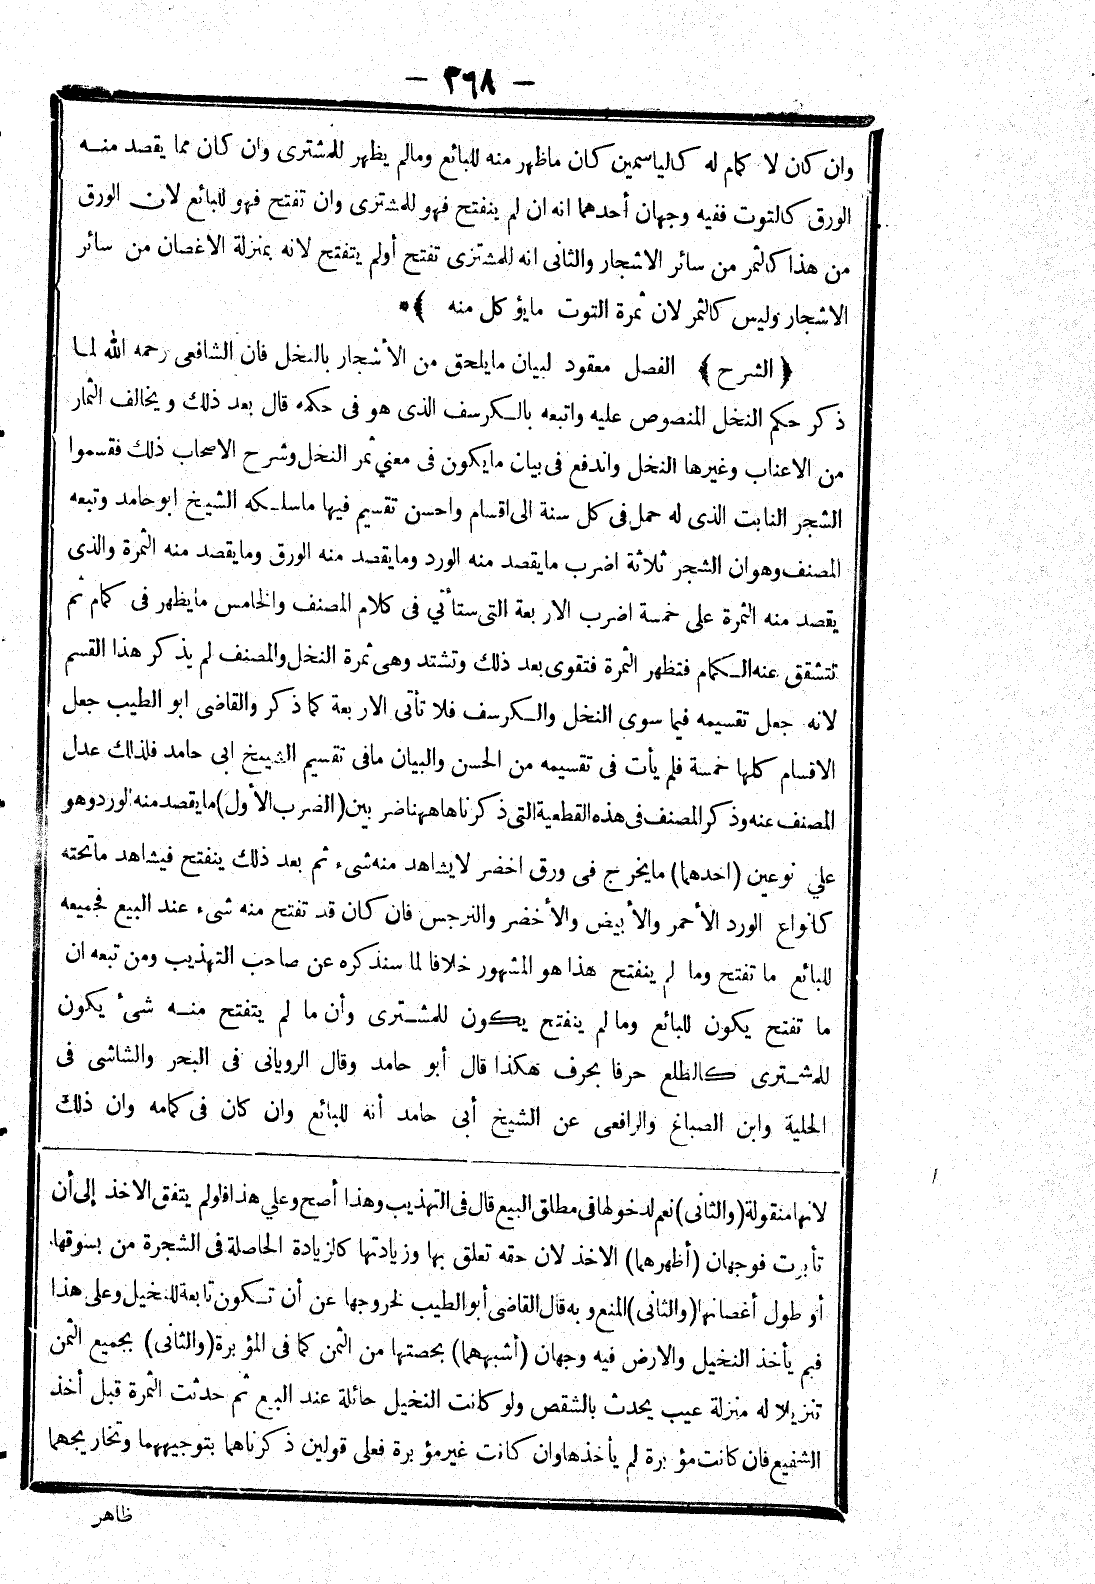 — ٣٦٨ —
وان كان لا كمام له كالياسمين كان ماظهر منه للبائع ومالم يظهر للمشترى وان كان مما يقصد منه
الورق كالتوت ففيه وجهان أحدهما انه ان لم ينفتح فهو للمشترى وان تفتح فهو للبائع لان الورق
من هذا كالثمر من سائر الاشجار والثانى انه للمشترى تفتح أولم يتفتح لانه بمنزلة الاغصان من سائر
الاشجار وليس كالثمر لان ثمرة التوت مايؤكل منه ﴾*
﴿الشرح﴾ الفصل معقود لبيان مايلحق من الأشجار بالنخل فان الشافعى رحمه الله لما
ذكر حكم النخل المنصوص عليه واتبعه بالكرسف الذى هو فى حكمه قال بعد ذلك ويخالف الثمار
من الاعناب وغيرها النخل واندفع فى بيان مايكون فى معني ثمر النخل وشرح الاصحاب ذلك فقسموا
الشجر النابت الذى له حمل فى كل سنة الى اقسام واحسن تقسيم فيها ماسلكه الشيخ ابوحامد وتبعه
المصنف وهو ان الشجر ثلاثة اضرب مايقصد منه الورد ومايقصد منه الورق ومايقصد منه الثمرة والذى
يقصد منه الثمرة على خمسة اضرب الاربعة التى ستأتي فى كلام المصنف والخامس مايظهر فى كمام ثم
تتشقق عنه الكمام فتظهر الثمرة فتقوى بعد ذلك وتشتد وهى ثمرة النخل والمصنف لم يذكر هذا القسم
لانه جعل تقسيمه فيما سوى النخل والكرسف فلا تأتى الاربعة كما ذكر والقاضى ابو الطيب جعل
الاقسام كلها خمسة فلم يأت فى تقسيمه من الحسن والبيان مافى تقسيم الشيخ ابى حامد فلذلك عدل
المصنف عنه وذكر المصنف فى هذه القطعية التى ذكرناها ههنا ضربين (الضرب الأول) مايقصد منه الورد وهو
علي نوعين (احدهما) مايخرج فى ورق اخضر لايشاهد منه شىء ثم بعد ذلك ينفتح فيشاهد ماتحته
كانواع الورد الأحمر والأبيض والأخضر والنرجس فان كان قد تفتح منه شىء عند البيع فجميعه
للبائع ما تفتح وما لم ينفتح هذا هو المشهور خلافا لما سنذكره عن صاحب التهذيب ومن تبعه ان
ما تفتح يكون للبائع ومالم ينفتح يكون للمشترى وأن ما لم يتفتح منه شىء يكون
للمشترى كالطلع حرفا بحرف هكذا قال أبو حامد وقال الرويانى فى البحر والشاشى فى
الحلية وابن الصباغ والرافعى عن الشيخ أبى حامد أنه للبائع وان كان فى كمامه وان ذلك
لانها منقولة (والثانى) نعم لدخولها فى مطلق البيع قال فى التهذيب وهذا أصح وعلي هذا فلو لم يتفق الاخذ إلى أن
تأبرت فوجهان (أظهرهما) الاخذ لان حقه تعلق بها وزيادتها كالزيادة الحاصلة فى الشجرة من بسوقها
أو طول أغصانها (والثانى) المنع وبه قال القاضى أبو الطيب لخروجها عن أن تكون تابعة للنخيل وعلى هذا
فبم يأخذ النخيل والارض فيه وجهان (أشبههما) بحصتها من الثمن كما فى المؤبرة (والثانى) بجميع الثمن
تنزيلا له منزلة عيب يحدث بالشقص ولو كانت النخيل حائلة عند البيع ثم حدثت الثمرة قبل أخذ
الشفيع فان كانت مؤبرة لم يأخذها وان كانت غير مؤبرة فعلى قولين ذكرناهما بتوجيههما وتخاريجهما
ظاهر